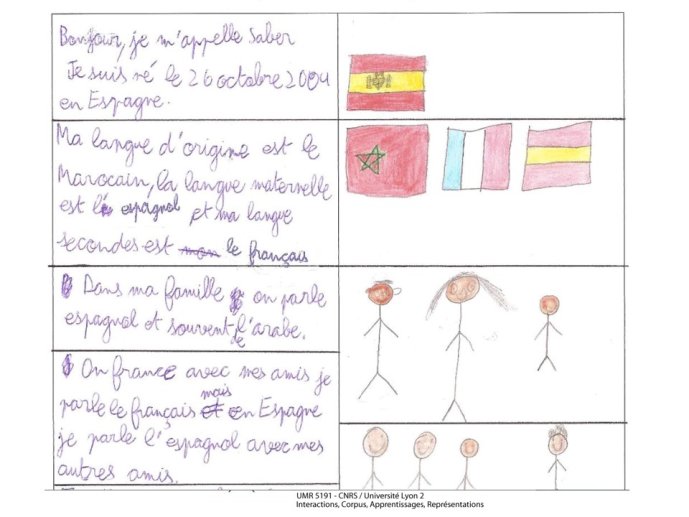 Bonjour, je m'appelle Saber
Je suis né le 26 octobre 2004
en Espagne.
Ma langue d'origine est le
Marocain, la langue maternelle
est l' espagnol et ma langue
secondes est mon le français
Dans ma famille on parle
espagnol et souvent de l'arabe.
On france avec mes amis je
parle le français et mais en Espagne
je parle l'espagnol avec mes
autres amis.
UMR 5191 - CNRS / Université Lyon 2
Interactions, Corpus, Apprentissages, Représentations